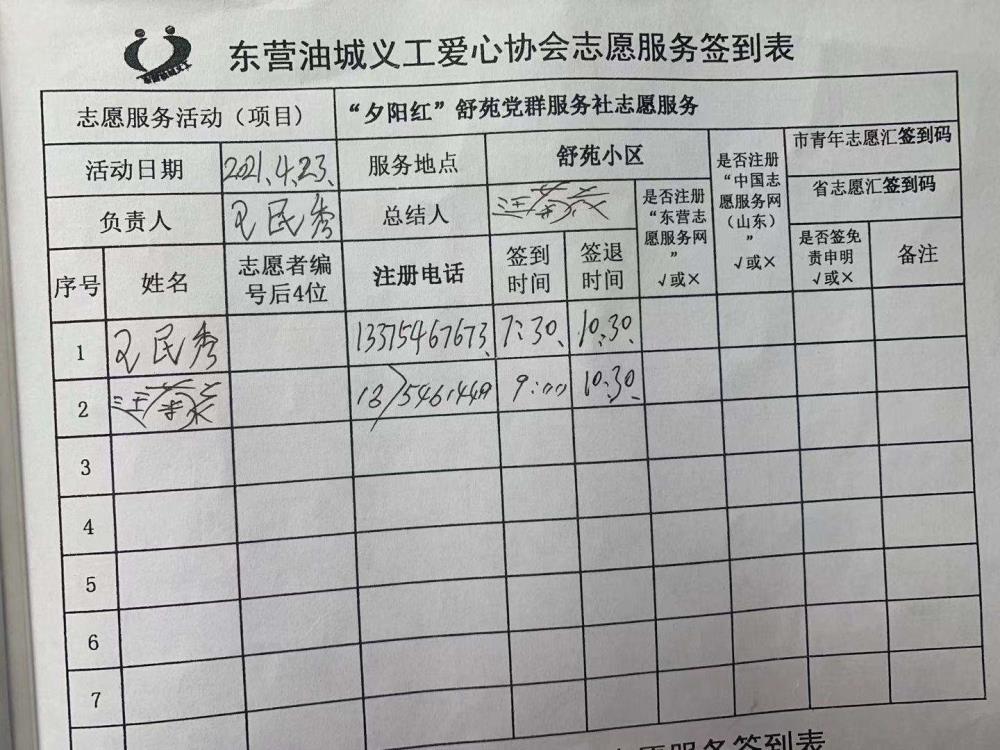 东营油城义工爱心协会志愿服务签到表
志愿服务活动（项目） “夕阳红”舒苑党群服务社志愿服务
活动日期 2021.4.23. 服务地点 舒苑小区 是否注册“中国志愿服务网（山东）” √或× 市青年志愿汇签到码
负责人 王民秀 总结人 是否注册“东营志愿服务网” √或× 省志愿汇签到码
序号 姓名 志愿者编号后4位 注册电话 签到时间 签退时间 是否签免责申明 √或× 备注
1 王民秀 13375467673. 7:30. 10:30.
2 9:00 10:30.
3
4
5
6
7
志愿服务签到表